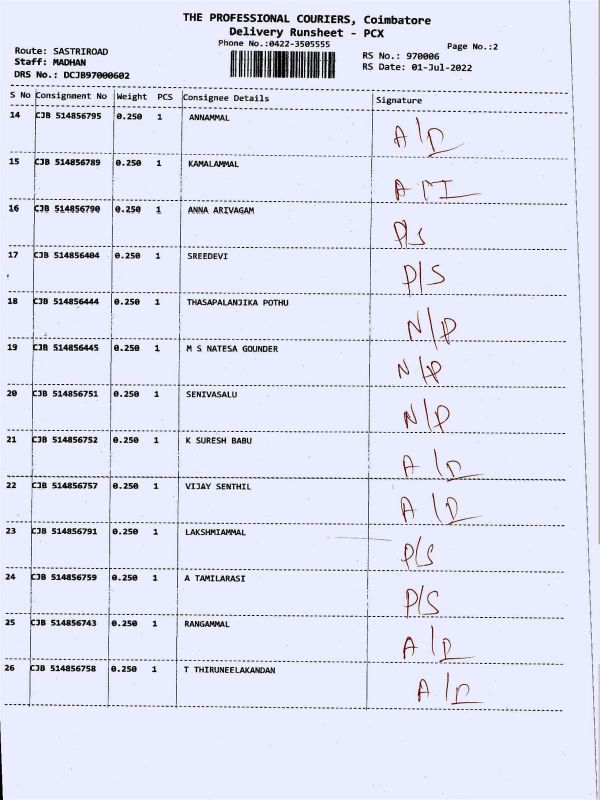 THE PROFESSIONAL COURIERS, Coimbatore
Delivery Runsheet - PCX
Phone No.:0422-3505555
Page No.:2
Route: SASTRIROAD
Staff: MADHAN
DRS No.: DCJB97000602
RS No.: 970006
RS Date: 01-Jul-2022
S No Consignment No Weight PCS Consignee Details Signature
14 CJB 514856795 0.250 1 ANNAMMAL A/D
15 CJB 514856789 0.250 1 KAMALAMMAL
16 CJB 514856790 0.250 1 ANNA ARIVAGAM P/S
17 CJB 514856404 0.250 1 SREEDEVI P/S
18 CJB 514856444 0.250 1 THASAPALANJIKA POTHU N/P
19 CJB 514856445 0.250 1 M S NATESA GOUNDER N/P
20 CJB 514856751 0.250 1 SENIVASALU N/P
21 CJB 514856752 0.250 1 K SURESH BABU A/D
22 CJB 514856757 0.250 1 VIJAY SENTHIL A/D
23 CJB 514856791 0.250 1 LAKSHMIAMMAL P/S
24 CJB 514856759 0.250 1 A TAMILARASI P/S
25 CJB 514856743 0.250 1 RANGAMMAL A/D
26 CJB 514856758 0.250 1 T THIRUNEELAKANDAN A/D